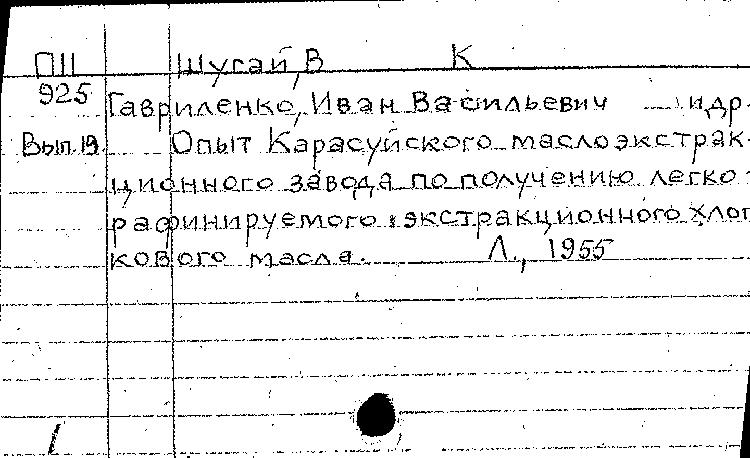 П11 Шугай, В К
925 Гавриленко, Иван Васильевич и др.
Вып. 19 Опыт Карасуйского маслоэкстрак-
ционного завода по получению легко-
рафинируемого экстракционного хлоп
кового масла. Л., 1955